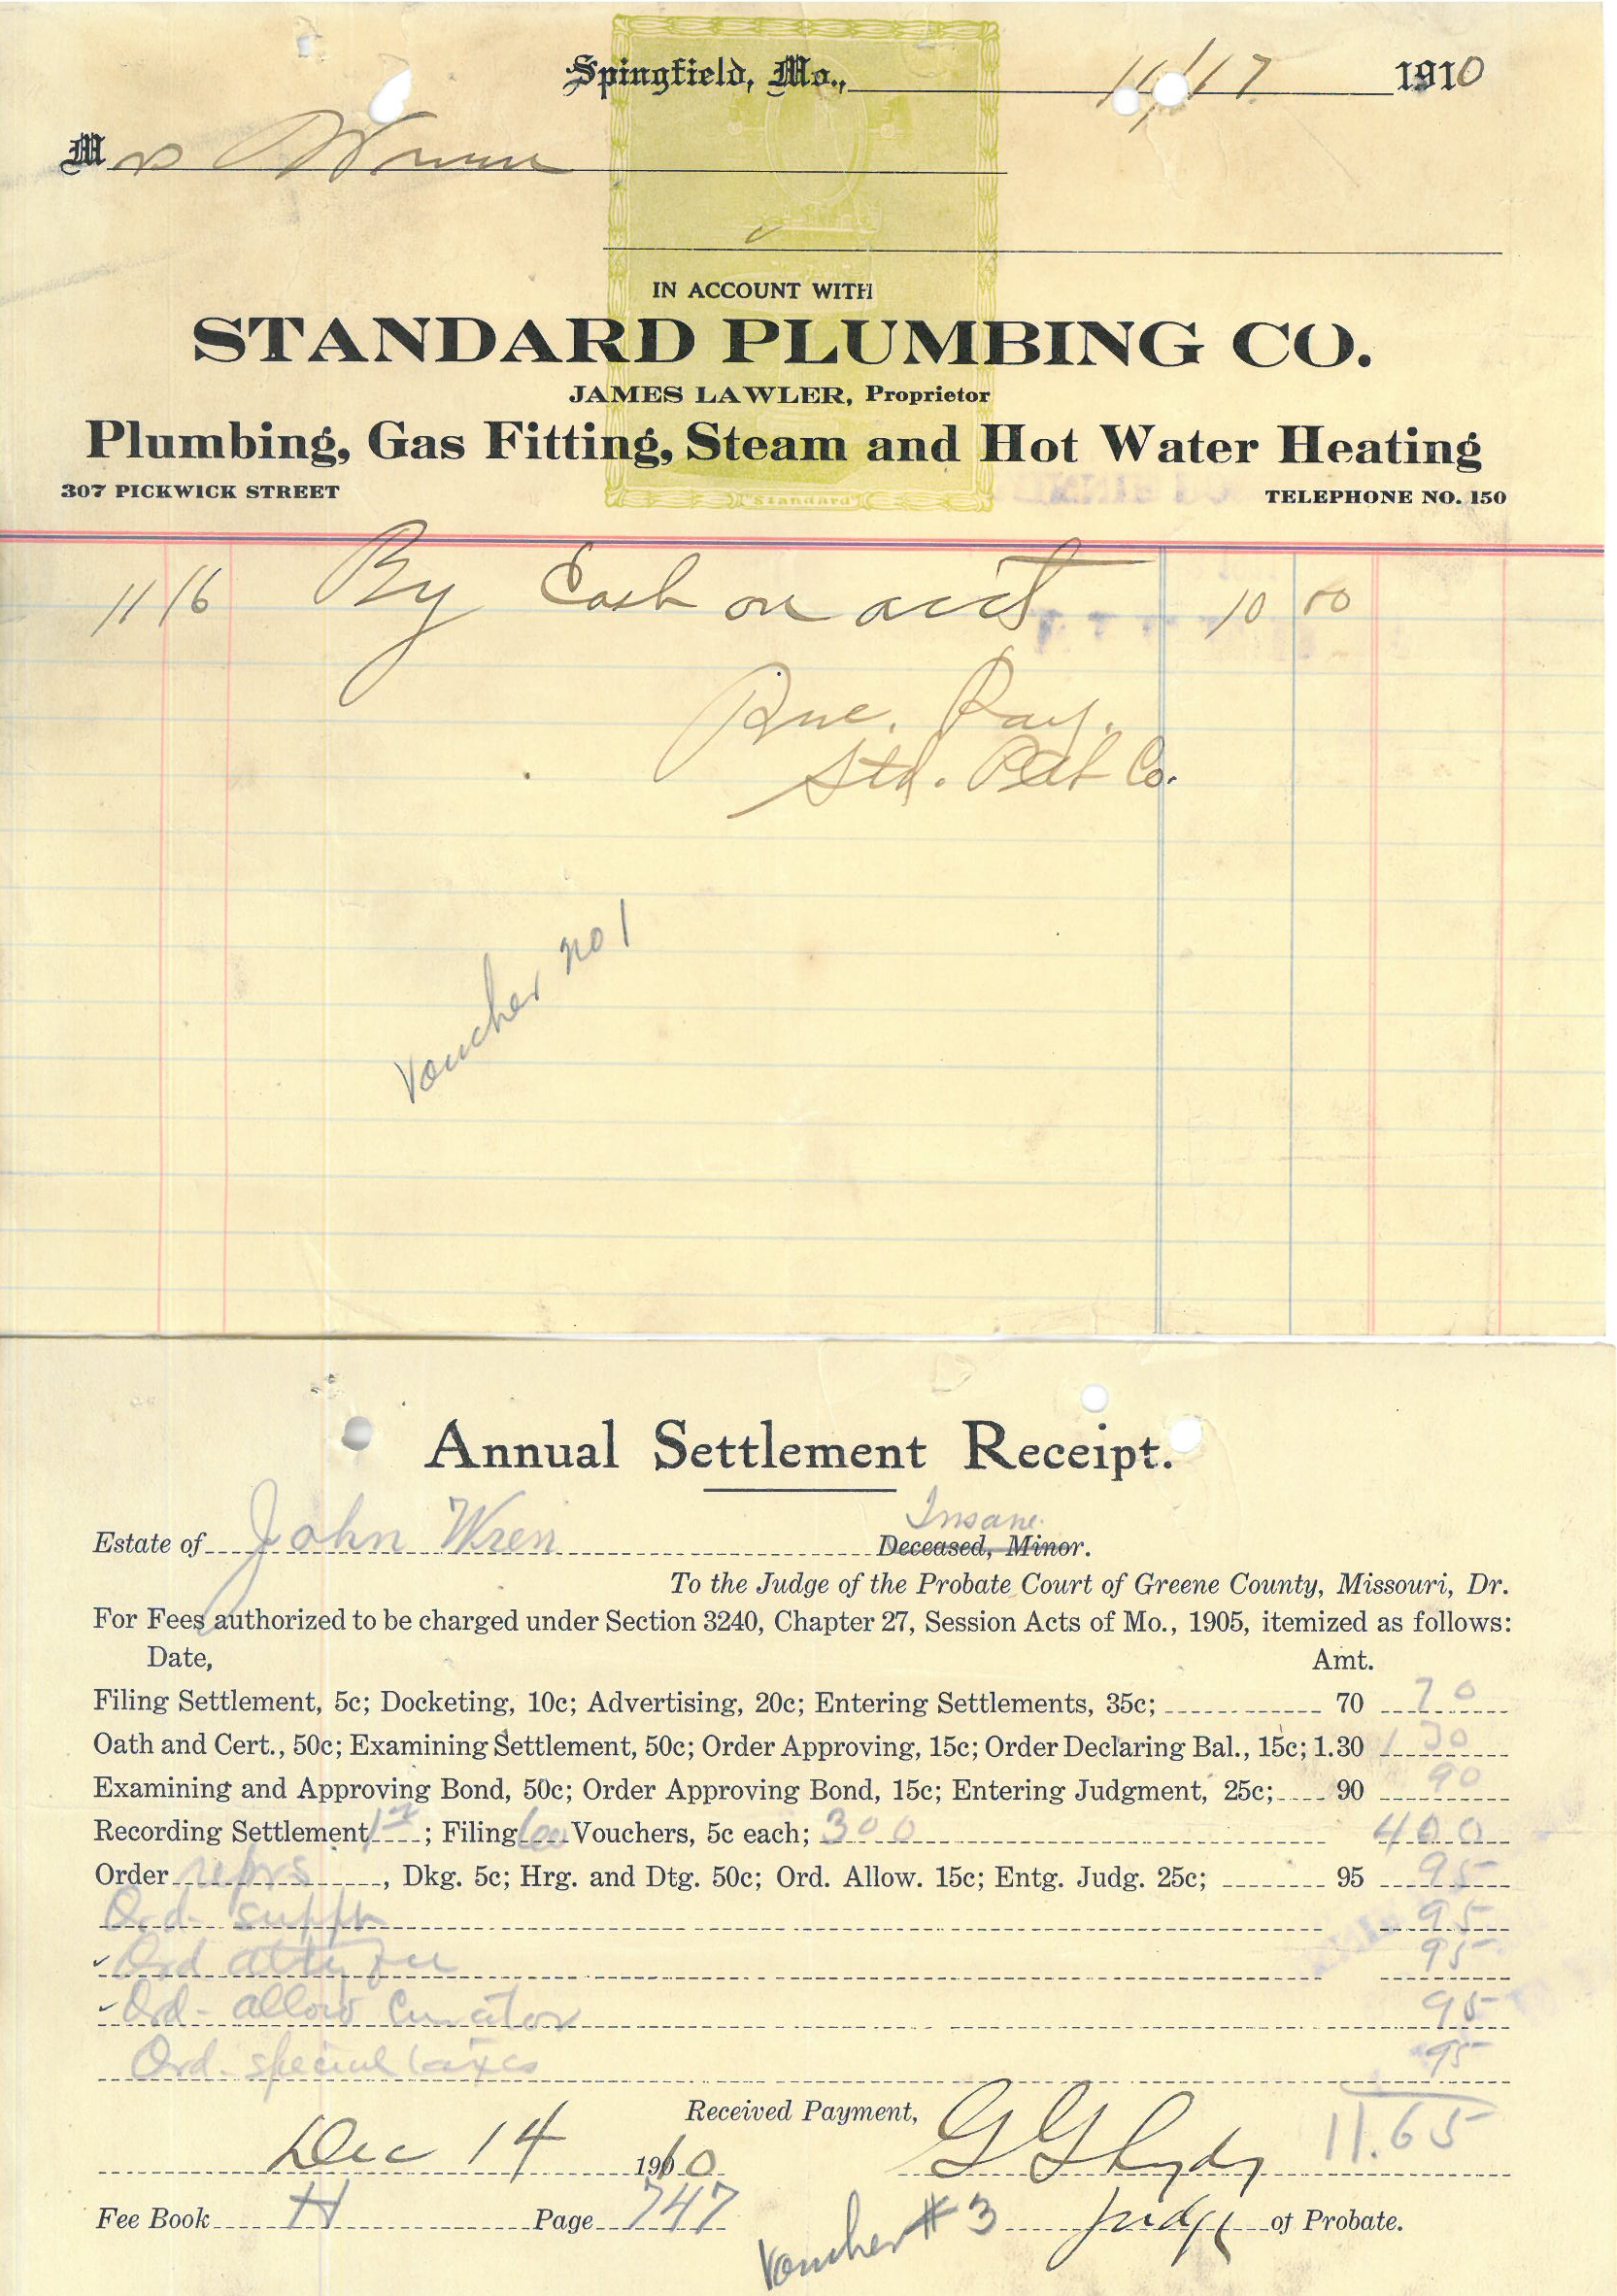 Spingfield, Mo., 11/17 1910
Mrs Wrenn
IN ACCOUNT WITH
STANDARD PLUMBING CO.
JAMES LAWLER, Proprietor
Plumbing, Gas Fitting, Steam and Hot Water Heating
307 PICKWICK STREET TELEPHONE NO. 150
"Standard"
11/16 By Cash on acct 10 00
Rec. Pay.
Std. Co.
Voucher no 1
Annual Settlement Receipt.
Insane.
Estate of John Wren Deceased, Minor.
To the Judge of the Probate Court of Greene County, Missouri, Dr.
For Fees authorized to be charged under Section 3240, Chapter 27, Session Acts of Mo., 1905, itemized as follows:
Date, Amt.
Filing Settlement, 5c; Docketing, 10c; Advertising, 20c; Entering Settlements, 35c; 70 70
Oath and Cert., 50c; Examining Settlement, 50c; Order Approving, 15c; Order Declaring Bal., 15c; 1.30 1 30
Examining and Approving Bond, 50c; Order Approving Bond, 15c; Entering Judgment, 25c; 90 90
Recording Settlement ; Filing 60 Vouchers, 5c each; 300 400
Order reprs , Dkg. 5c; Hrg. and Dtg. 50c; Ord. Allow. 15c; Entg. Judg. 25c; 95 95
Ord. supph 95
Ord atty fee 95
Ord- allow Curator 95
Ord. special taxes 95
Received Payment, 11.65
Dec 14 1910 G G Lydy
Fee Book H Page 747 Judge of Probate.
Voucher # 3